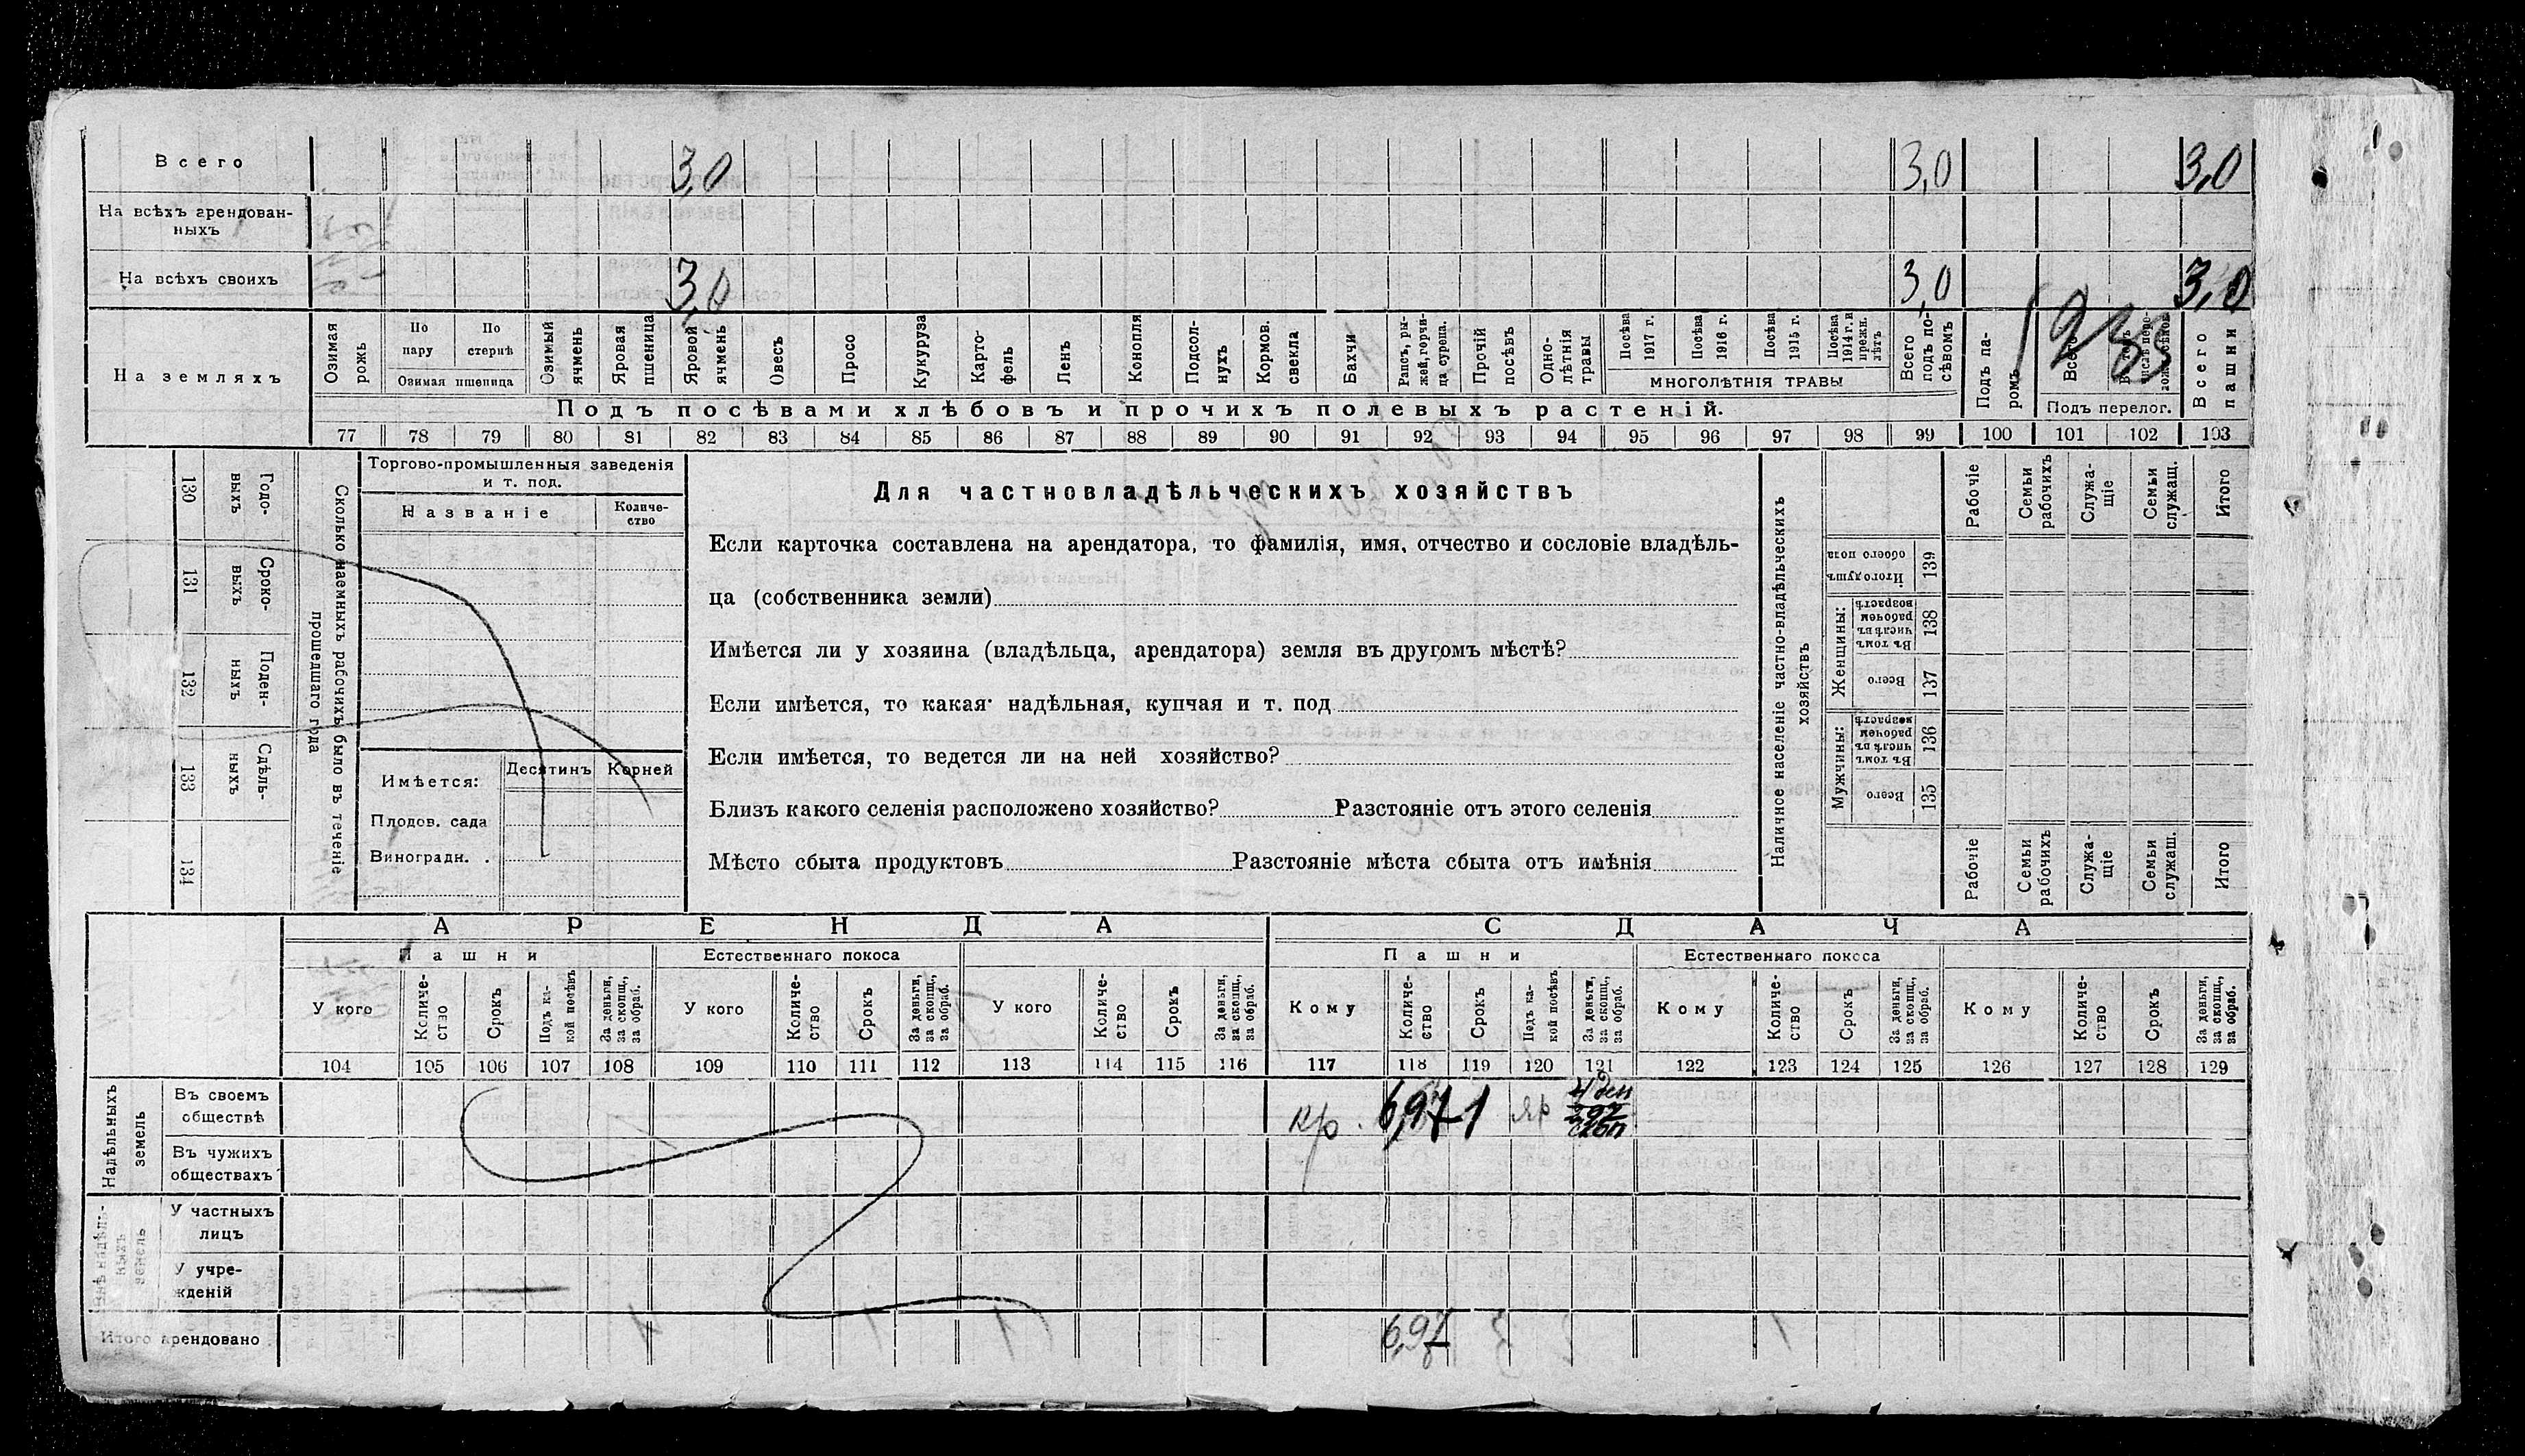 Всего 3,0 3,0 3,0
На всѣхъ арендован-
ныхъ
На всѣхъ своихъ 3,0 3,0 3,0
На земляхъ
Озимая рожь
По пару
По стернѣ
Озимая пшеница
Озимый ячмень
Яровая пшеница
Яровой ячмень
Овесъ
Просо
Кукуруза
Карто-
фель
Ленъ
Конопля
Подсол-
нухъ
Кормов. свекла
Бахчи
Рапсъ, ры-
жей, горчи-
ца сурепа.
Прочій посѣвъ
Одно-
лѣтнія травы
Посѣва 1917 г.
Посѣва 1916 г.
Посѣва 1915 г.
Посѣва 1914 г. и прежн. лѣтъ
МНОГОЛѢТНІЯ ТРАВЫ
Всего подъ по-
сѣвомъ
Подъ па-
ромъ
Всего
Подъ перелог.
Всего пашни
Подъ посѣвами хлѣбовъ и прочихъ полевыхъ растеній.
77 78 79 80 81 82 83 84 85 86 87 88 89 90 91 92 93 94 95 96 97 98 99 100 101 102 103
130 Годо-
выхъ
131 Сроко-
выхъ
132 Поден-
ныхъ
133 Сдѣль-
ныхъ
134
Сколько наемныхъ рабочихъ было въ теченіе
прошедшаго года
Торгово-промышленныя заведенія
и т. под.
Названіе
Количе-
ство
Имѣется:
Десятинъ
Корней
Плодов. сада
Виноградн. .
Для частновладѣльческихъ хозяйствъ
Если карточка составлена на арендатора, то фамилія, имя, отчество и сословіе владѣль-
ца (собственника земли)
Имѣется ли у хозяина (владѣльца, арендатора) земля въ другомъ мѣстѣ?
Если имѣется, то какая: надѣльная, купчая и т. под
Если имѣется, то ведется ли на ней хозяйство?
Близъ какого селенія расположено хозяйство? Разстояніе отъ этого селенія
Мѣсто сбыта продуктовъ Разстояніе мѣста сбыта отъ имѣнія
Наличное населеніе частно-владѣльческихъ
хозяйствъ
Рабочіе
Семьи рабочихъ
Служа-
щіе
Семьи служащ.
Итого
Итого душъ обоего пола 139
Женщины:
Въ томъ числѣ въ рабочем возрастѣ 138
Всего 137
Мужчины:
Въ томъ числѣ въ рабочем возрастѣ 136
Всего 135
Рабочіе
Семьи рабочихъ
Служа-
щіе
Семьи служащ.
Итого
АРЕНДА
СДАЧА
Пашни
Естественнаго покоса
Пашни
Естественнаго покоса
У кого
Количе-
ство
Срокъ
Подъ ка-
кой посѣвъ
За деньги, за скопщ., за обраб.
У кого
Количе-
ство
Срокъ
За деньги, за скопщ., за обраб.
У кого
Количе-
ство
Срокъ
За деньги, за скопщ., за обраб.
Кому
Количе-
ство
Срокъ
Подъ ка-
кой посѣвъ
За деньги, за скопщ., за обраб.
Кому
Количе-
ство
Срокъ
За деньги, за скопщ., за обраб.
Кому
Количе-
ство
Срокъ
За деньги, за скопщ., за обраб.
104 105 106 107 108 109 110 111 112 113 114 115 116 117 118 119 120 121 122 123 124 125 126 127 128 129
Надѣльныхъ
земель
Въ своемъ
обществѣ
кр. 6,97 1 яр
Въ чужихъ
обществахъ
Внѣ надѣль-
ныхъ
земель
У частныхъ
лицъ
У учре-
жденій
Итого арендовано 6,97